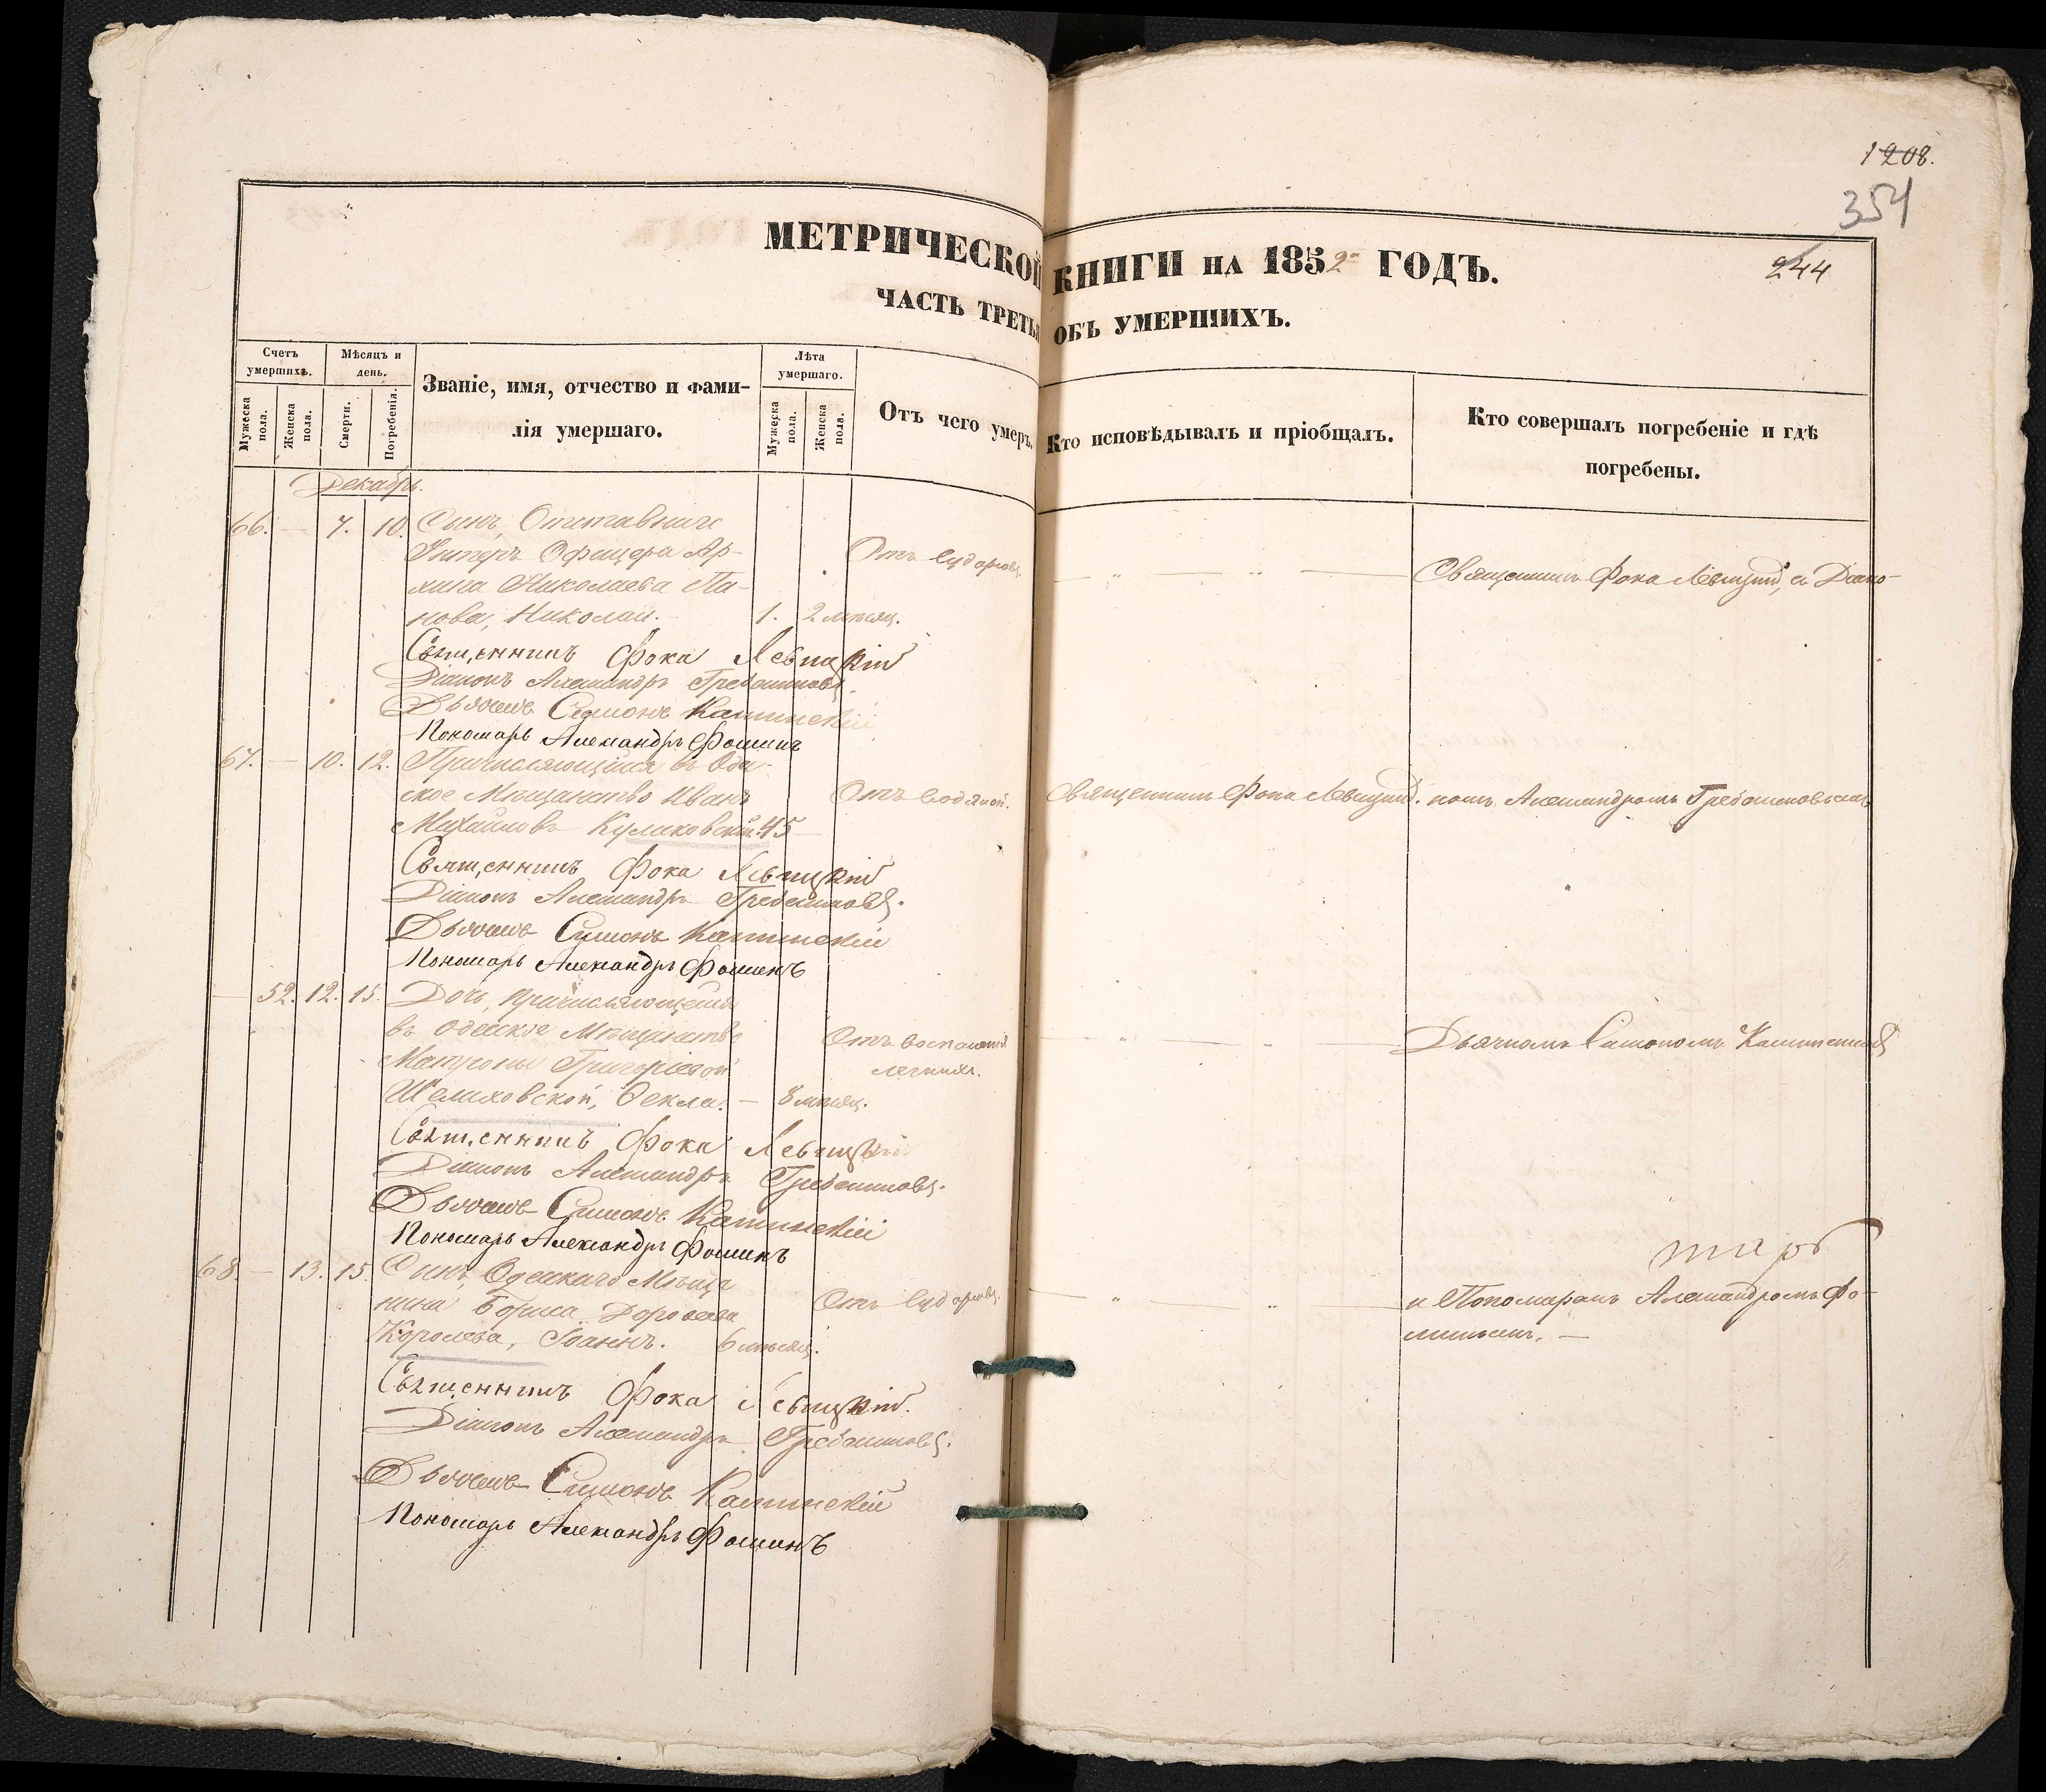 1208.
354
244
МЕТРИЧЕСКОЙ КНИГИ НА 1852й ГОДЪ.
ЧАСТЬ ТРЕТЬЯ ОБЪ УМЕРШИХЪ.
Счетъ умершихъ.
Мѣсяцъ и день.
Званіе, имя, отчество и фами-
лія умершаго.
Лѣта умершаго.
Отъ чего умеръ.
Кто исповѣдывалъ и пріобщалъ.
Кто совершалъ погребеніе и гдѣ
погребены.
Мужеска пола.
Женска пола.
Смерти.
Погребенія.
Мужеска пола.
Женска пола.
Декабрь.
66. — 7. 10. Сынъ, Отставнаго
Унтеръ Офицера Ар-
хипа Николаева Па-
нова, Николай. 1. 2 мѣсяц.
Отъ судорогъ.
Священникъ Фока Лѣвицкій, съ Діако-
Священникъ Фока Лѣвицкій
Діаконъ Александръ Гребенниковъ.
Дьячекъ Симонъ Капинскій
Пономарь Александръ Фоминъ
67. — 10. 12. Причисляющійся въ Оде-
ское Мѣщанство Иванъ
Михайловъ Куликовскій. 45 —
Отъ водяной.
Священникъ Фока Лѣвицкій.
номъ Александромъ Гребенниковымъ
Священникъ Фока Лѣвицкій
Діаконъ Александръ Гребенниковъ.
Дьячекъ Симонъ Капинскій
Пономарь Александръ Фоминъ
— 52. 12. 15. Дочь, причисляющейся
въ Одеское Мѣщанство
Матроны Григоріевой
Шелиховской, Ѳекла. — 8 мѣсяц.
Отъ воспаленія
легкихъ.
Дьячкомъ Симономъ Капинскимъ
Священникъ Фока Лѣвицкій
Діаконъ Александръ Гребенниковъ.
Дьячекъ Симонъ Капинскій
Пономарь Александръ Фоминъ
68. — 13. 15. Сынъ, Одескаго Мѣща-
нина Бориса Дорофеева
Королева, Іоаннъ. 6 мѣсяц.
Отъ судорогъ.
марь
и Пономаремъ Александромъ Фо-
минымъ. —
Священникъ Фока Лѣвицкій.
Діаконъ Александръ Гребенниковъ.
Дьячекъ Симонъ Капинскій
Пономарь Александръ Фоминъ